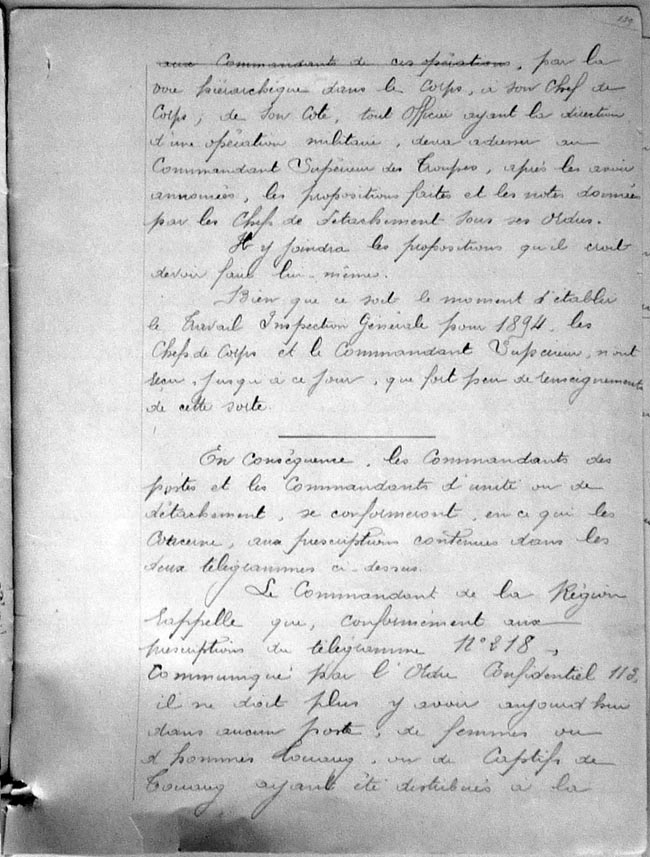 aux Commandants de ces opérations, par la
voie hiérarchique dans le Corps, à son Chef de
Corps; de son Coté, tout Officier ayant la direction
d'une opération militaire, devra adresser au
Commandant Supérieur des Troupes, après les avoir
annotées, les propositions faites et les notes données
par les Chefs de détachement sous ses ordres.
Il y joindra les propositions qu'il croit
devoir faire lui-même.
Bien que ce soit le moment d'établir
le Travail Inspection Générale pour 1894, les
Chefs de Corps et le Commandant Supérieur, n'ont
reçu, jusqu'à ce jour, que fort peu de renseignements
de cette sorte.
En Conséquence, les Commandants des
postes et les Commandants d'unité ou de
détachement, se conformeront, en ce qui les
Concerne, aux prescriptions contenues dans les
deux télégrammes ci-dessus.
Le Commandant de la Région
rappelle que, conformément aux
prescriptions du télégramme N° 218,
Communiqué par l'Ordre Confidentiel 113,
il ne doit plus y avoir aujourd'hui
dans aucun poste, de femmes ou
d'hommes Touareg, ou de Captifs de
Touareg ayant été distribués à la